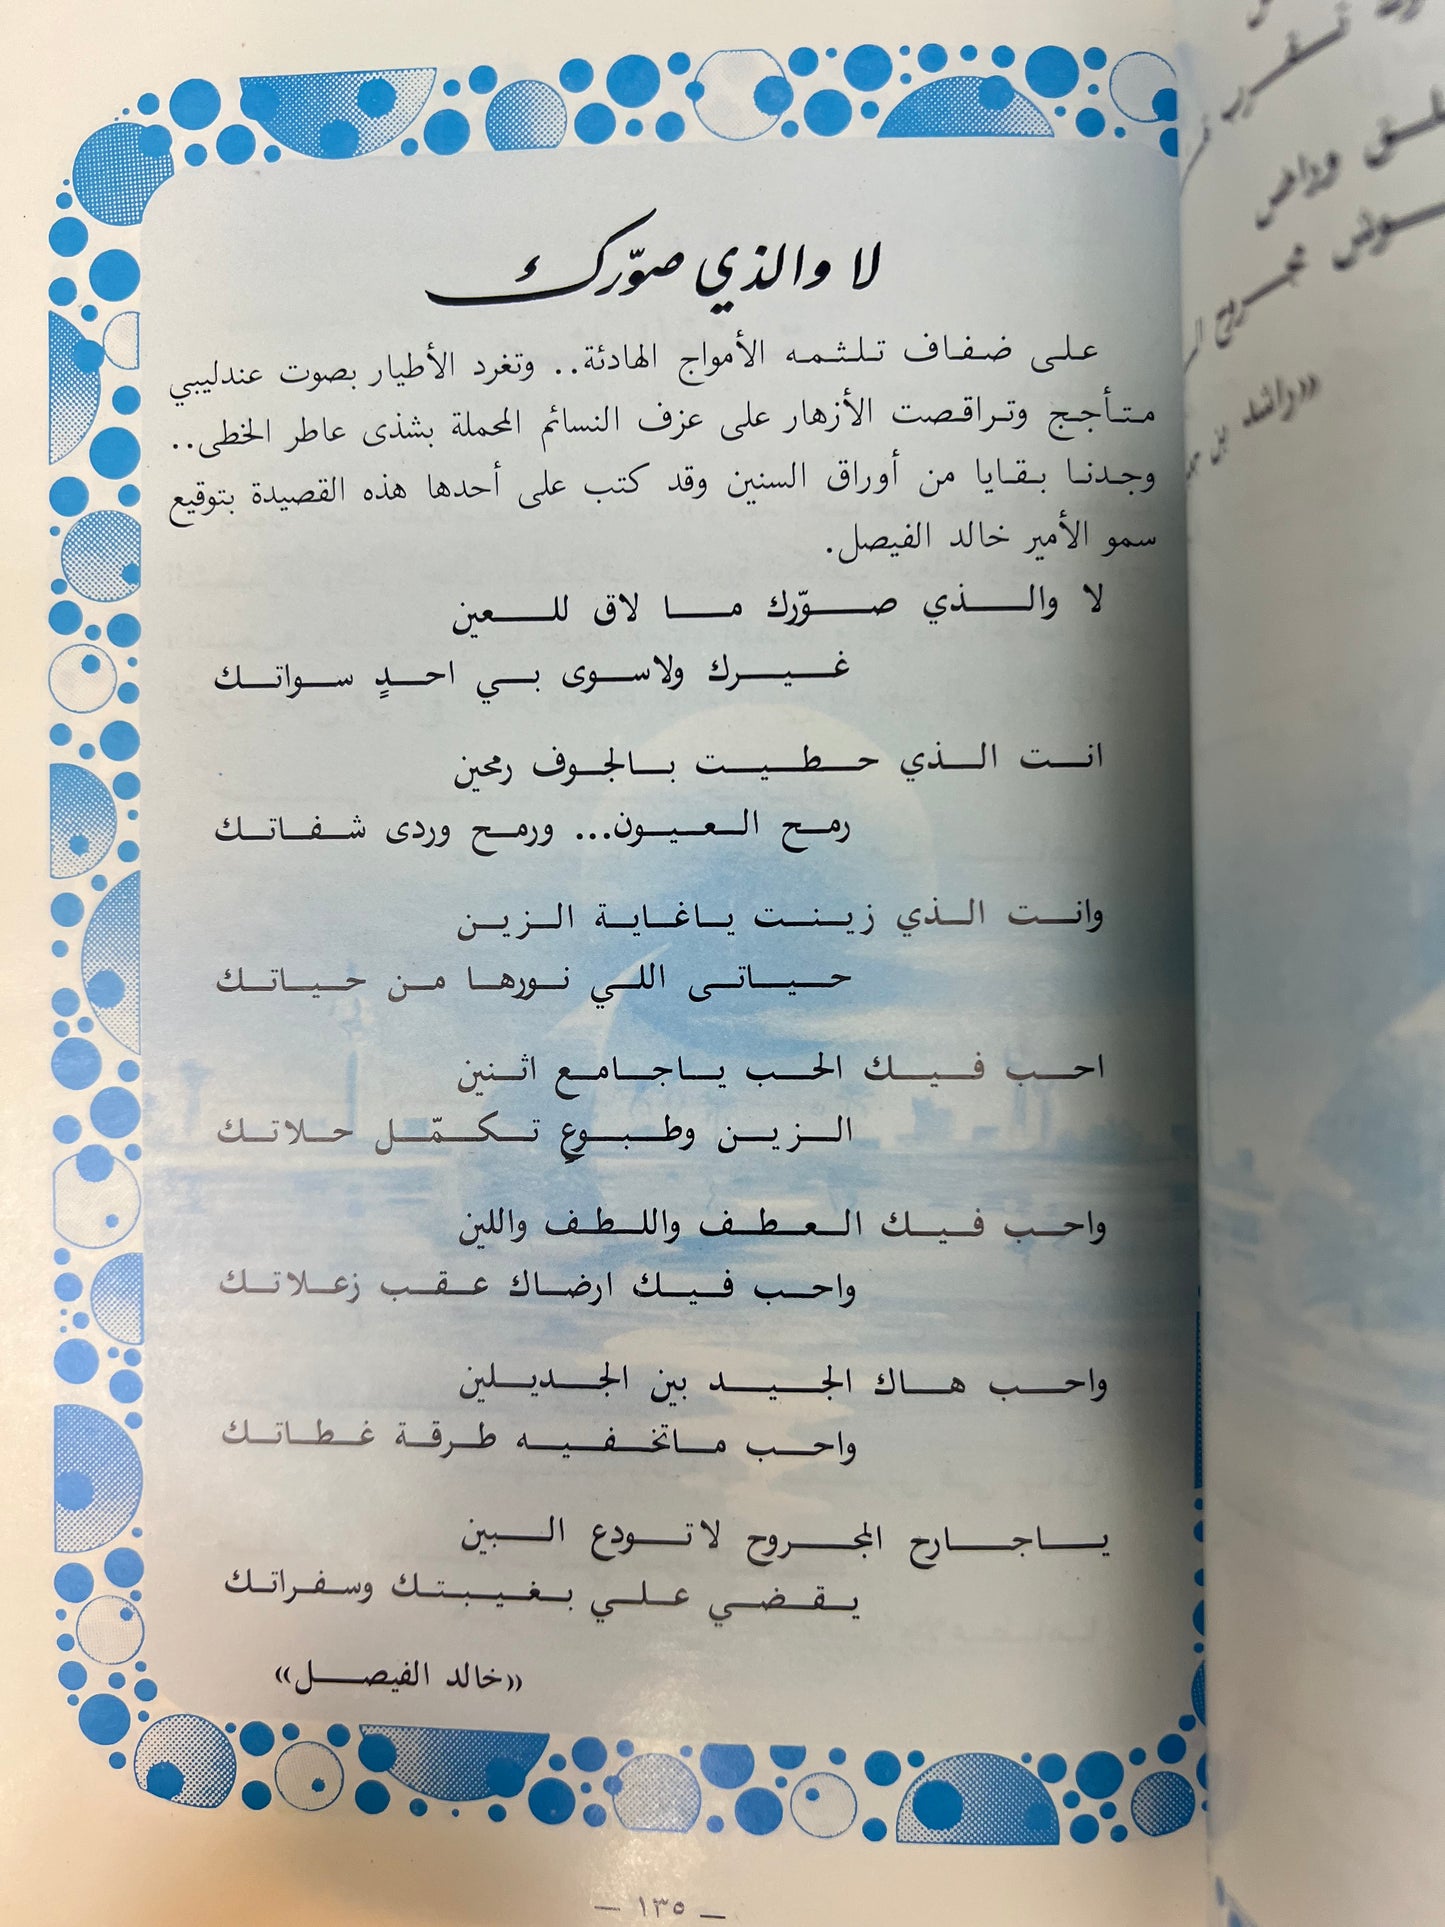 لا والذي صوّرك
على ضفاف تلثمه الأمواج الهادئة.. وتغرد الأطيار بصوت عندليبي
متأجج وتراقصت الأزهار على عزف النسائم المحملة بشذى عاطر الخطى..
وجدنا بقايا من أوراق السنين وقد كتب على أحدها هذه القصيدة بتوقيع
سمو الأمير خالد الفيصل.
لا والذي صوّرك ما لاق للعين
غيرك ولاسوى بي احدٍ سواتك
انت الذي حطيت بالجوف رمحين
رمح العيون... ورمح وردى شفاتك
وانت الذي زينت ياغاية الزين
حياتى اللي نورها من حياتك
احب فيك الحب ياجامع اثنين
الزين وطبوعٍ تكمّل حلاتك
واحب فيك العطف واللطف واللين
واحب فيك ارضاك عقب زعلاتك
واحب هاك الجيد بين الجديلين
واحب ماتخفيه طرقة غطاتك
ياجارح المجروح لاتودع البين
يقضي علي بغيبتك وسفراتك
«خالد الفيصل»
— ١٣٥ —
وراض
مجروح
«راشد بن